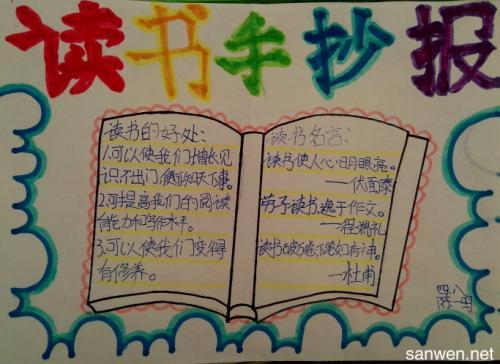 读书手抄报
读书的好处:
1.可以使我们增长见
识不出门,便知天下事。
2.可提高我们的阅读
能力和写作水平。
3.可以使我们变得
有修养。
读书名言:
读书使人心明眼亮。
——伏尔泰
劳于读书,逸于作文。
——程端礼
读书破万卷,下笔如有神。
——杜甫
四.八
sanwen.net